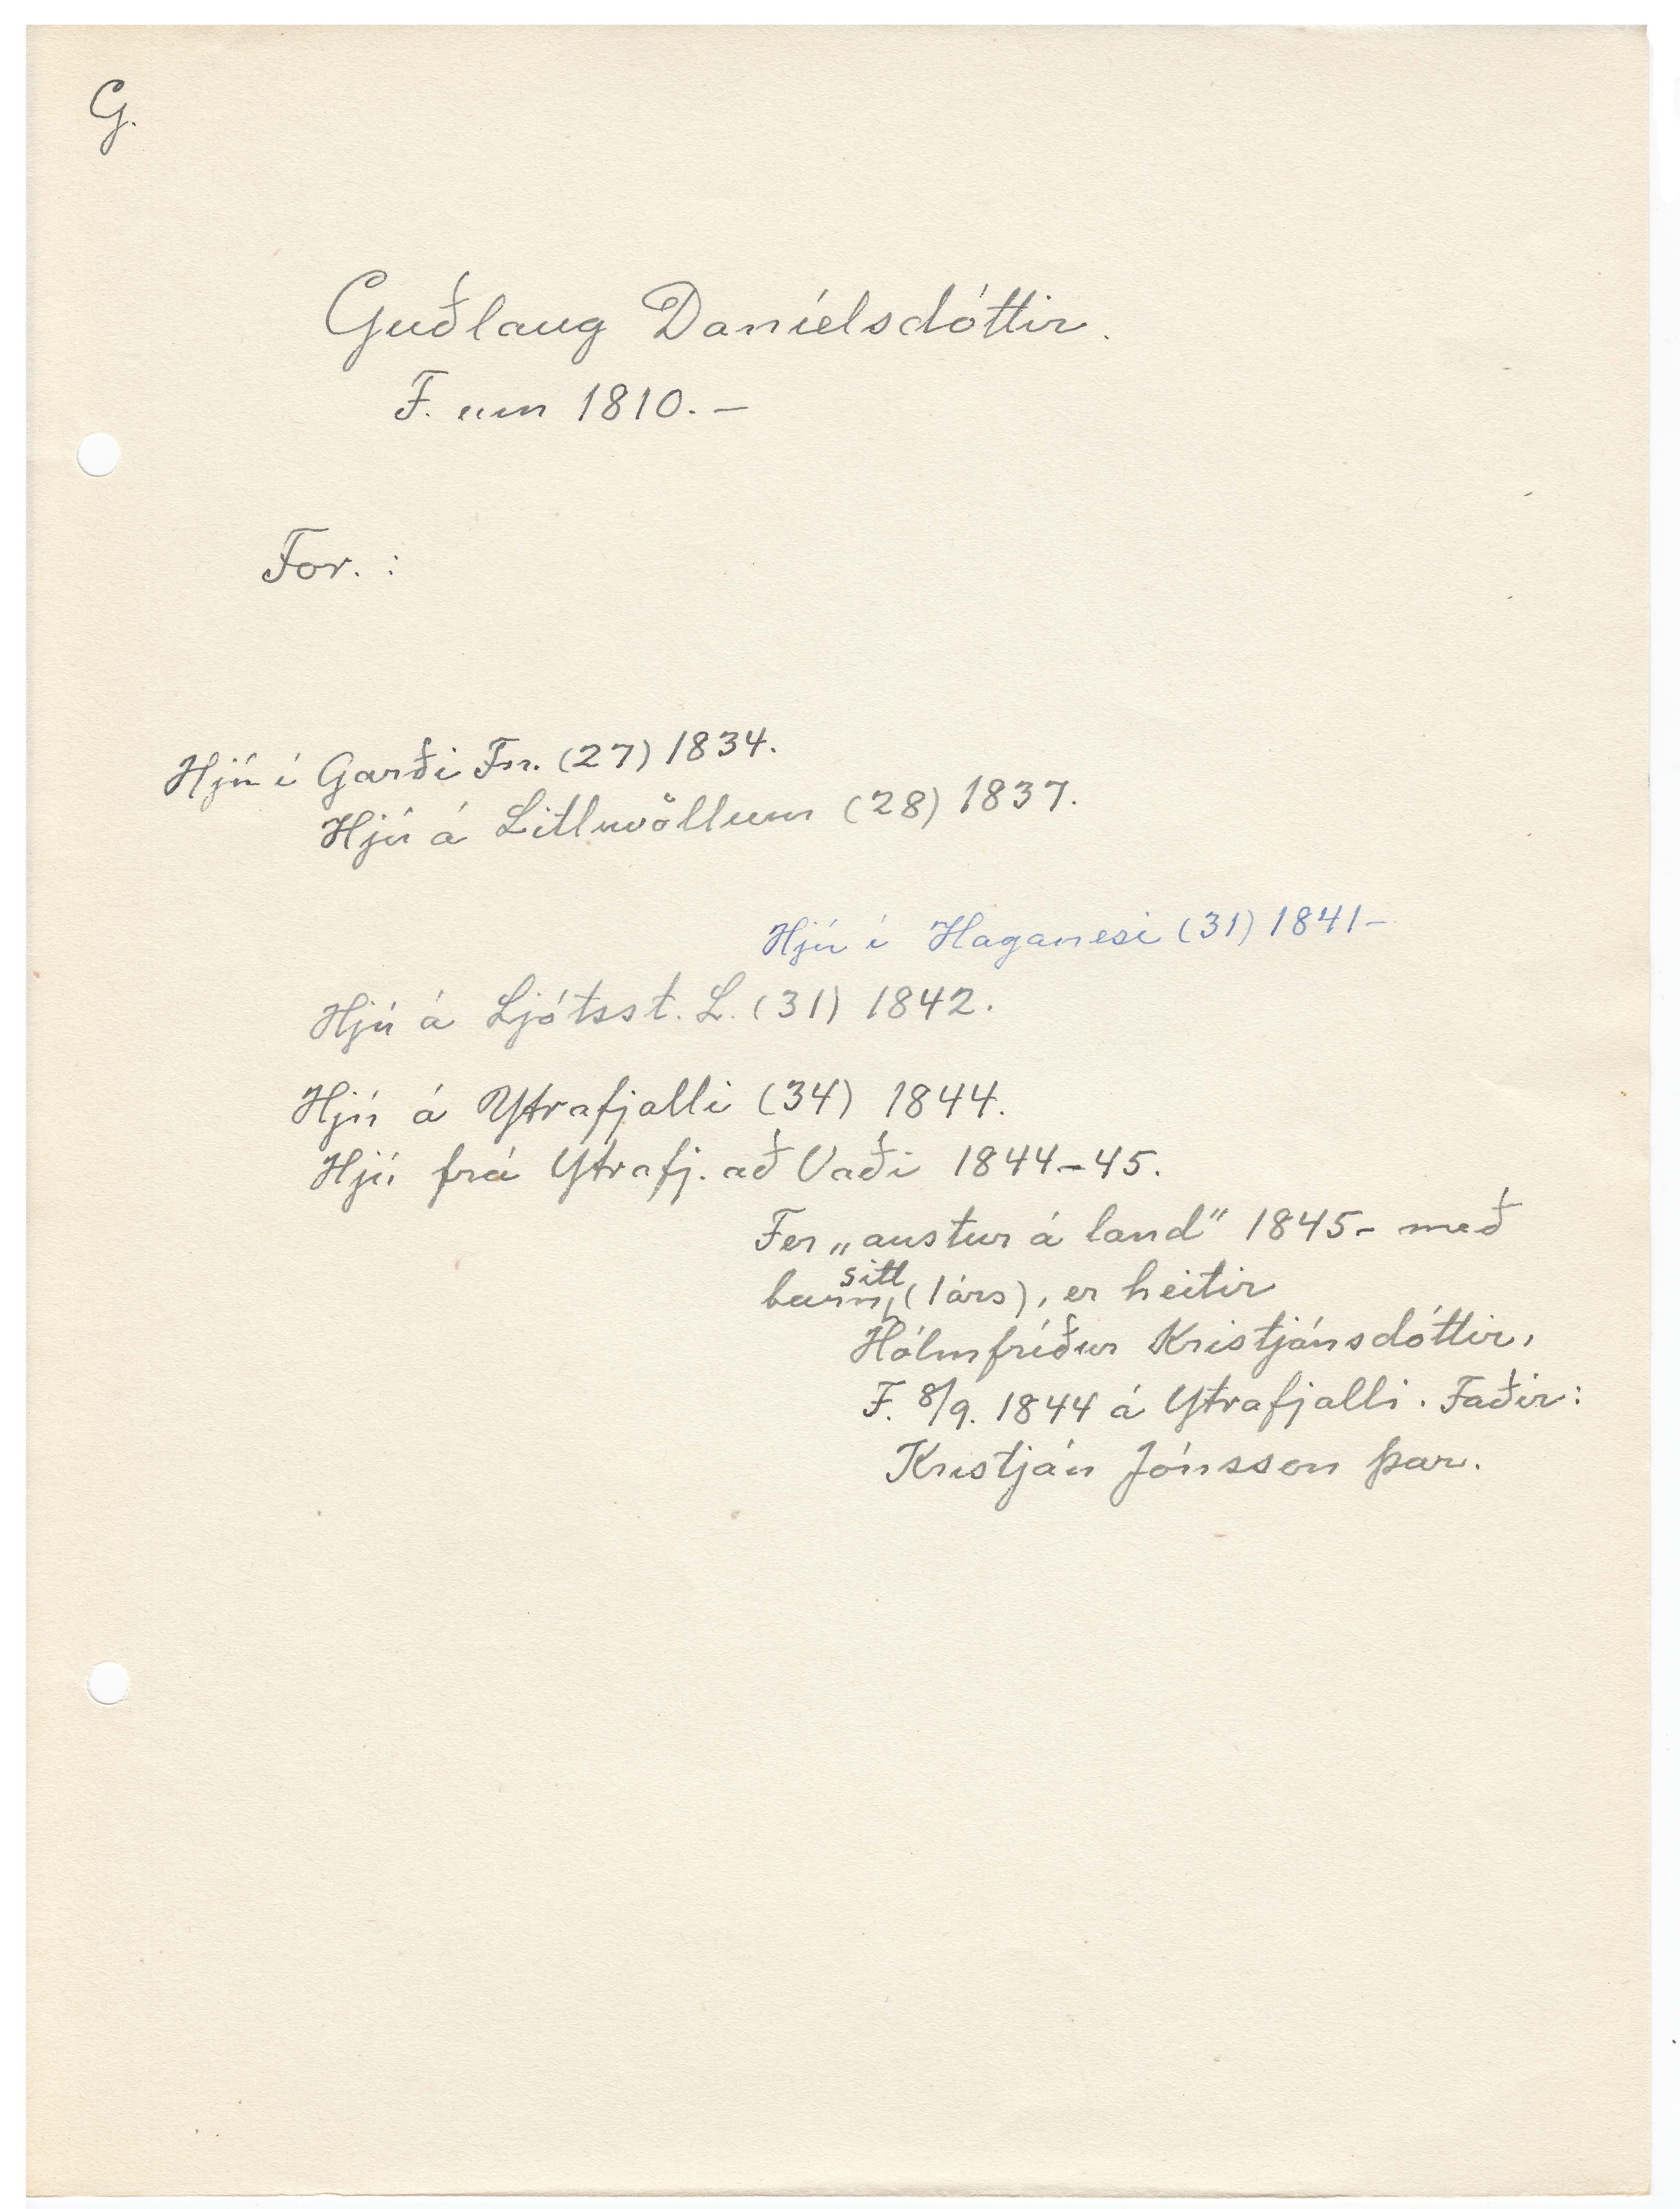 G.
Guðlaug Daníelsdóttir.
F. um 1810. –
For. :
Hjú í Garði Fn. (27) 1834.
Hjú á Litluvöllum (28) 1837.
Hjú í Haganesi (31) 1841–
Hjú á Ljótsst. L. (31) 1842.
Hjú á Ytrafjalli (34) 1844.
Hjú frá Ytrafj. að Vaði 1844–45.
Fer „austur á land" 1845– með
barn sitt (1 árs), er heitir
Hólmfríður Kristjánsdóttir.
F. 8/9. 1844 á Ytrafjalli. Faðir:
Kristján Jónsson þar.